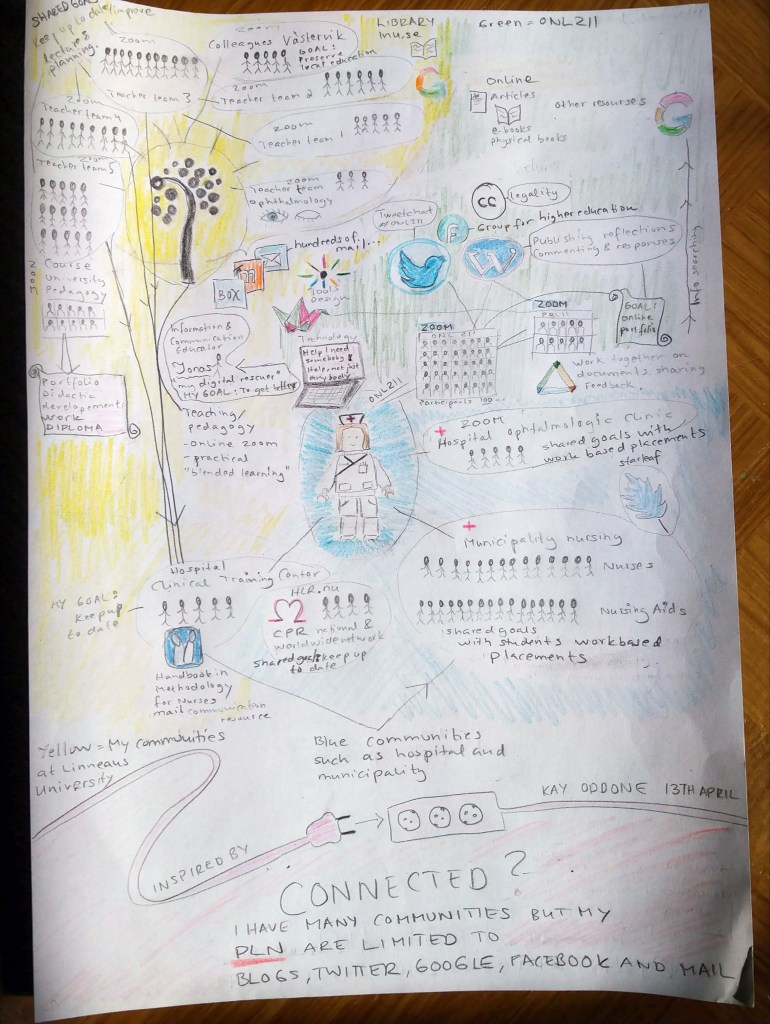 SHARED GOAL
keep up to date/improve
lecture &
planning.
ZOOM
Teacher team 3
Colleagues Västervik
GOAL:
preserve
local education
ZOOM
Teacher team 2
LIBRARY
lnu.se
Green = ONL211
ZOOM
Teacher team 1
Online
articles
e-books
physical books
other resourses
ZOOM
Teacher team 4
ZOOM
Teacher team 5
ZOOM
Teacher team
Ophthalmology
cc
legality
Tweetchat
#ONL211
Group for higher education
Publishing reflections
Commenting & responses
W
Info searching
hundreds of
mail...
BOX
Tools
Design
ZOOM
Course
University
Pedagogy
Portfolio
Didactic
developement
work
DIPLOMA
Information &
Communication
Educator
Jonas
"my digital rescuer"
MY GOAL: To get better
Technology
Help I need
somebody!
Help, not just
any body
ONL211
ZOOM
ONL 211
Participants
ZOOM
GOAL:
online
portfolio
work together on
documents, sharing
Feedback.
Teaching/
pedagogy
- online zoom
- practical
"blended learning"
ZOOM
Hospital Ophtalmologic Clinic
shared goals with
work based placements
starleaf
Municipality nursing
Nurses
Nursing Aids
shared goals
with students workbased
placements
Hospital
Clinical Training Centor
MY GOAL:
Keep up
to date
HLR.nu
CPR national &
worldwide network
shared goals keep up
to date
Handbook in
Methodology
for Nurses
mail communication
resource
Yellow = My communities
at Linneaus
University
Blue communities
such as hospital and
municipality
KAY ODDONE 13TH APRIL
INSPIRED BY
CONNECTED?
I HAVE MANY COMMUNITIES BUT MY
PLN ARE LIMITED TO
BLOGS, TWITTER, GOOGLE, FACEBOOK AND MAIL